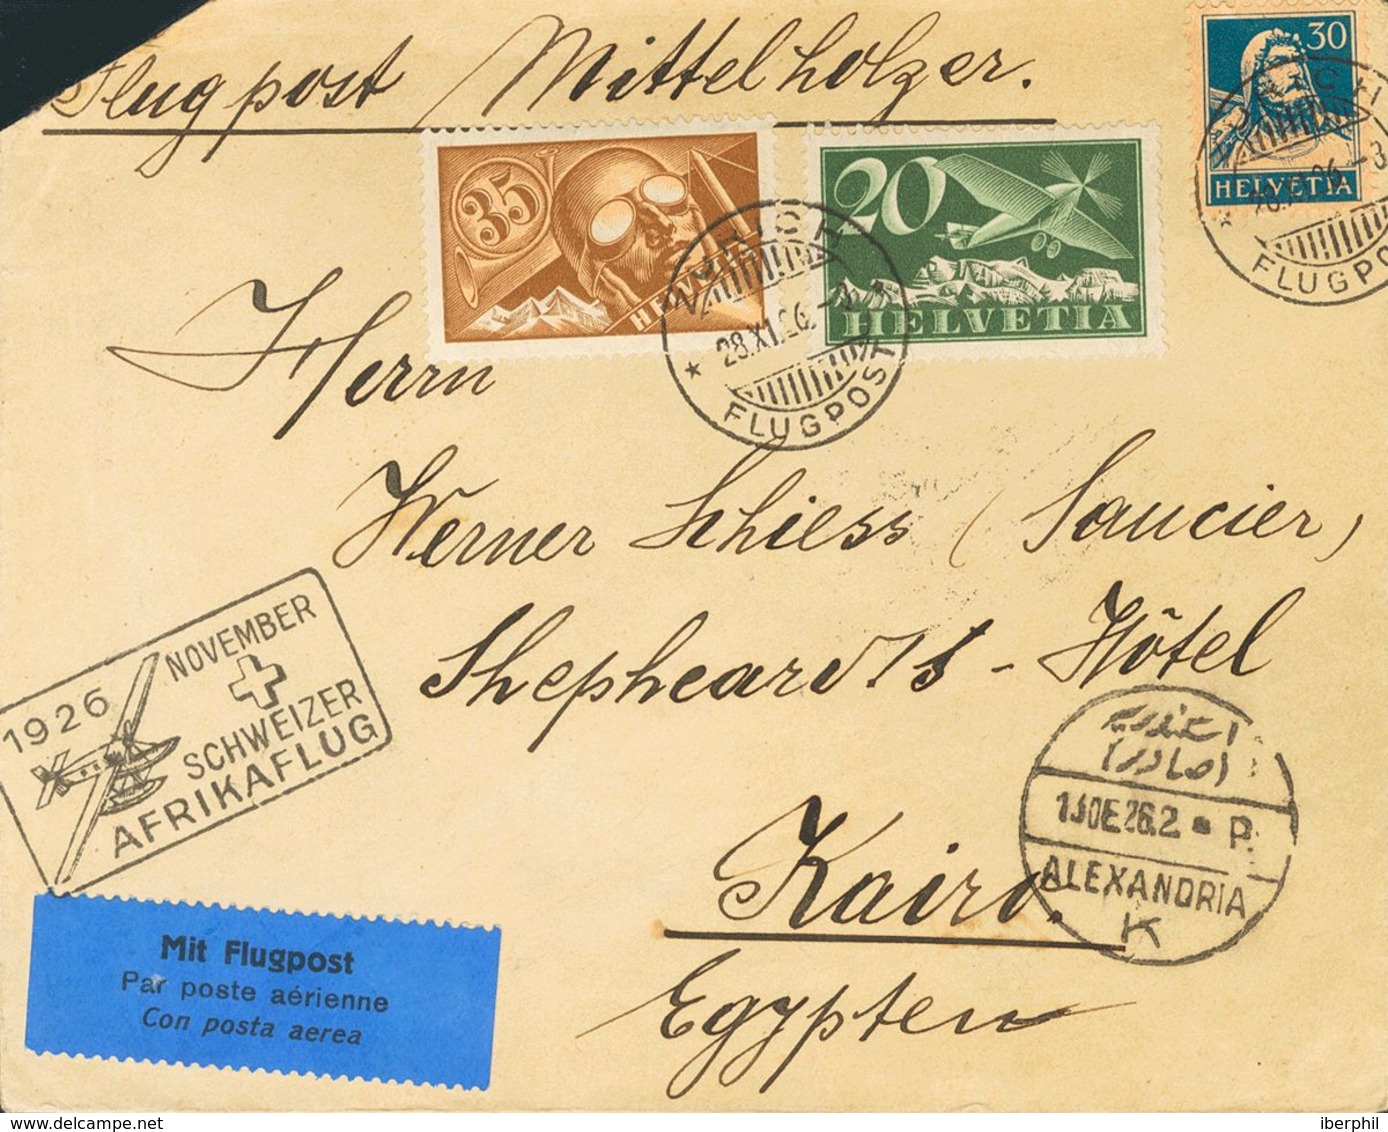 Flugpost Mittelholzer.
30
HELVETIA
35
HELVETIA
20
HELVETIA
ZÜRICH
28.XI.26.
FLUGPOST
ZÜRICH
28.XI.26.-3
FLUGPO
Herrn
Werner Schiess (Saucier)
Shepheard's-Hôtel
Kairo.
Egypten
1926 NOVEMBER
SCHWEIZER
AFRIKAFLUG
اسكندرية
(صادر)
13DE26.2 P.
ALEXANDRIA
K
Mit Flugpost
Par poste aérienne
Con posta aerea
delcampe.net
iberphil